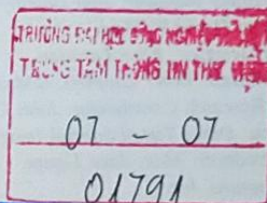 TRƯỜNG ĐẠI HỌC CÔNG NGHIỆP
TRUNG TÂM THÔNG TIN THƯ VIỆN
07 - 07
01791